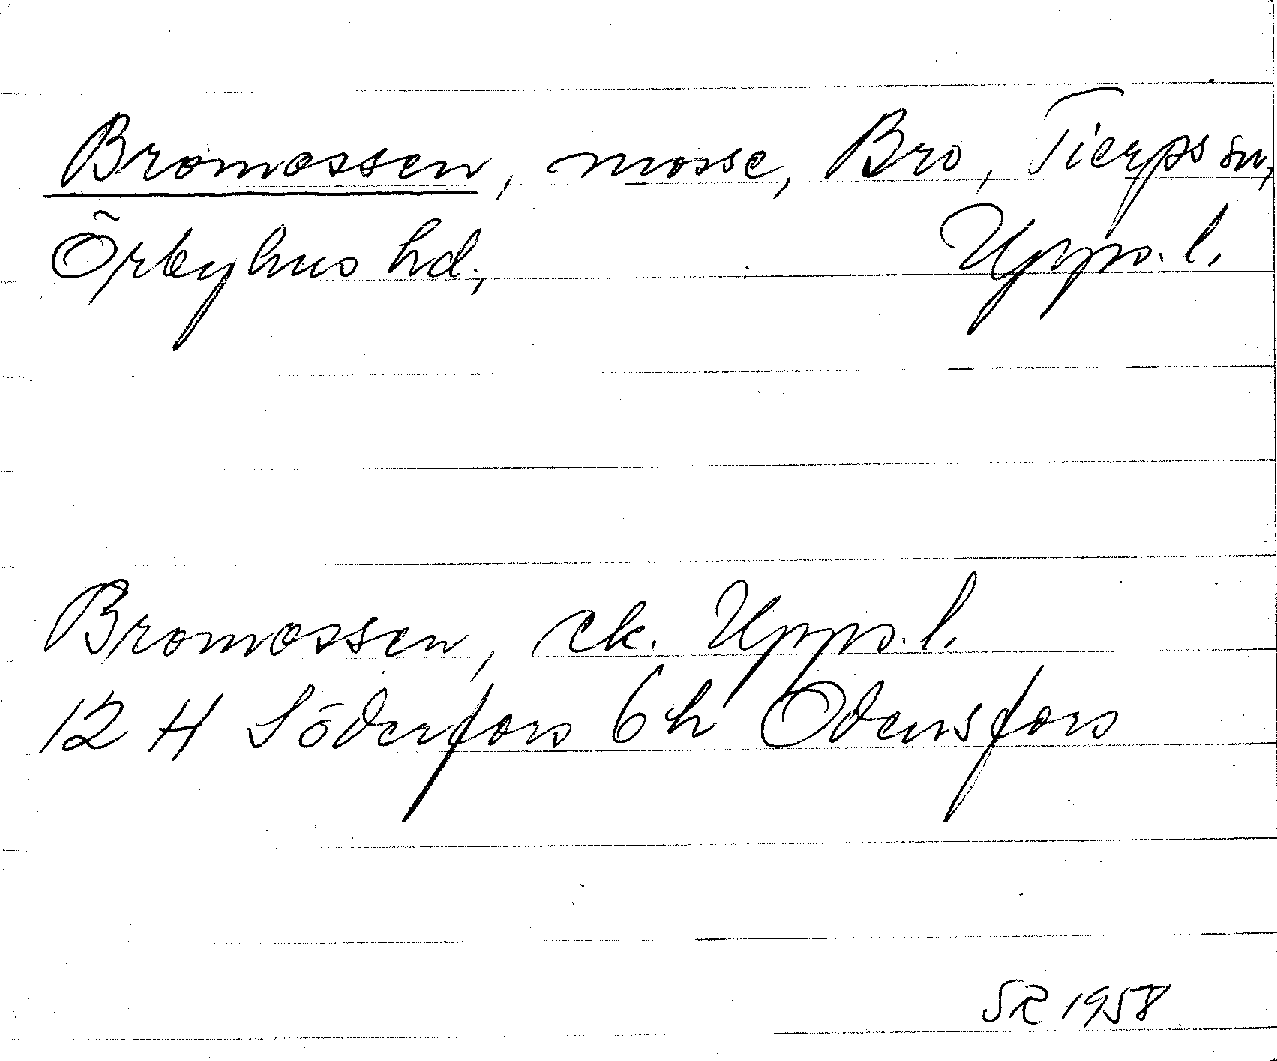 Bromossen, mosse, Bro, Tierps sn,
Örbyhus hd, Upps. l.
Bromossen, ek. Upps. l.
12 H Söderfors 6 h Odensfors
SR 1958